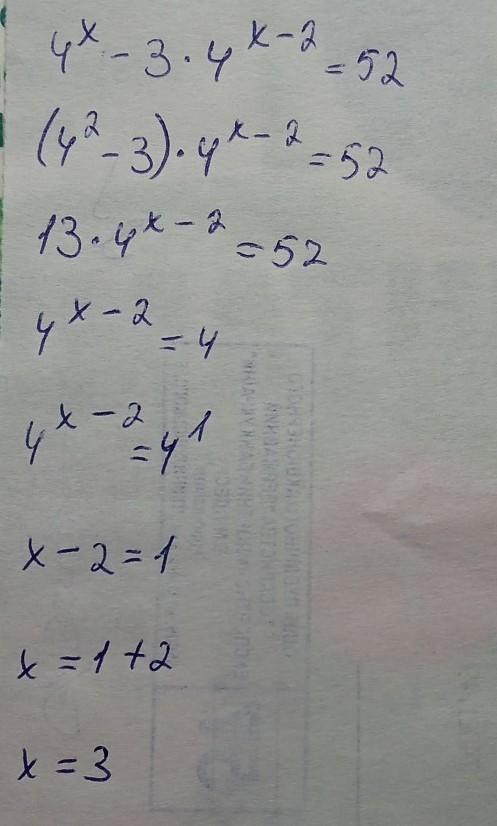 4^x - 3 · 4^{x-2} = 52
(4^2 - 3) · 4^{x-2} = 52
13 · 4^{x-2} = 52
4^{x-2} = 4
4^{x-2} = 4^1
x - 2 = 1
x = 1 + 2
x = 3